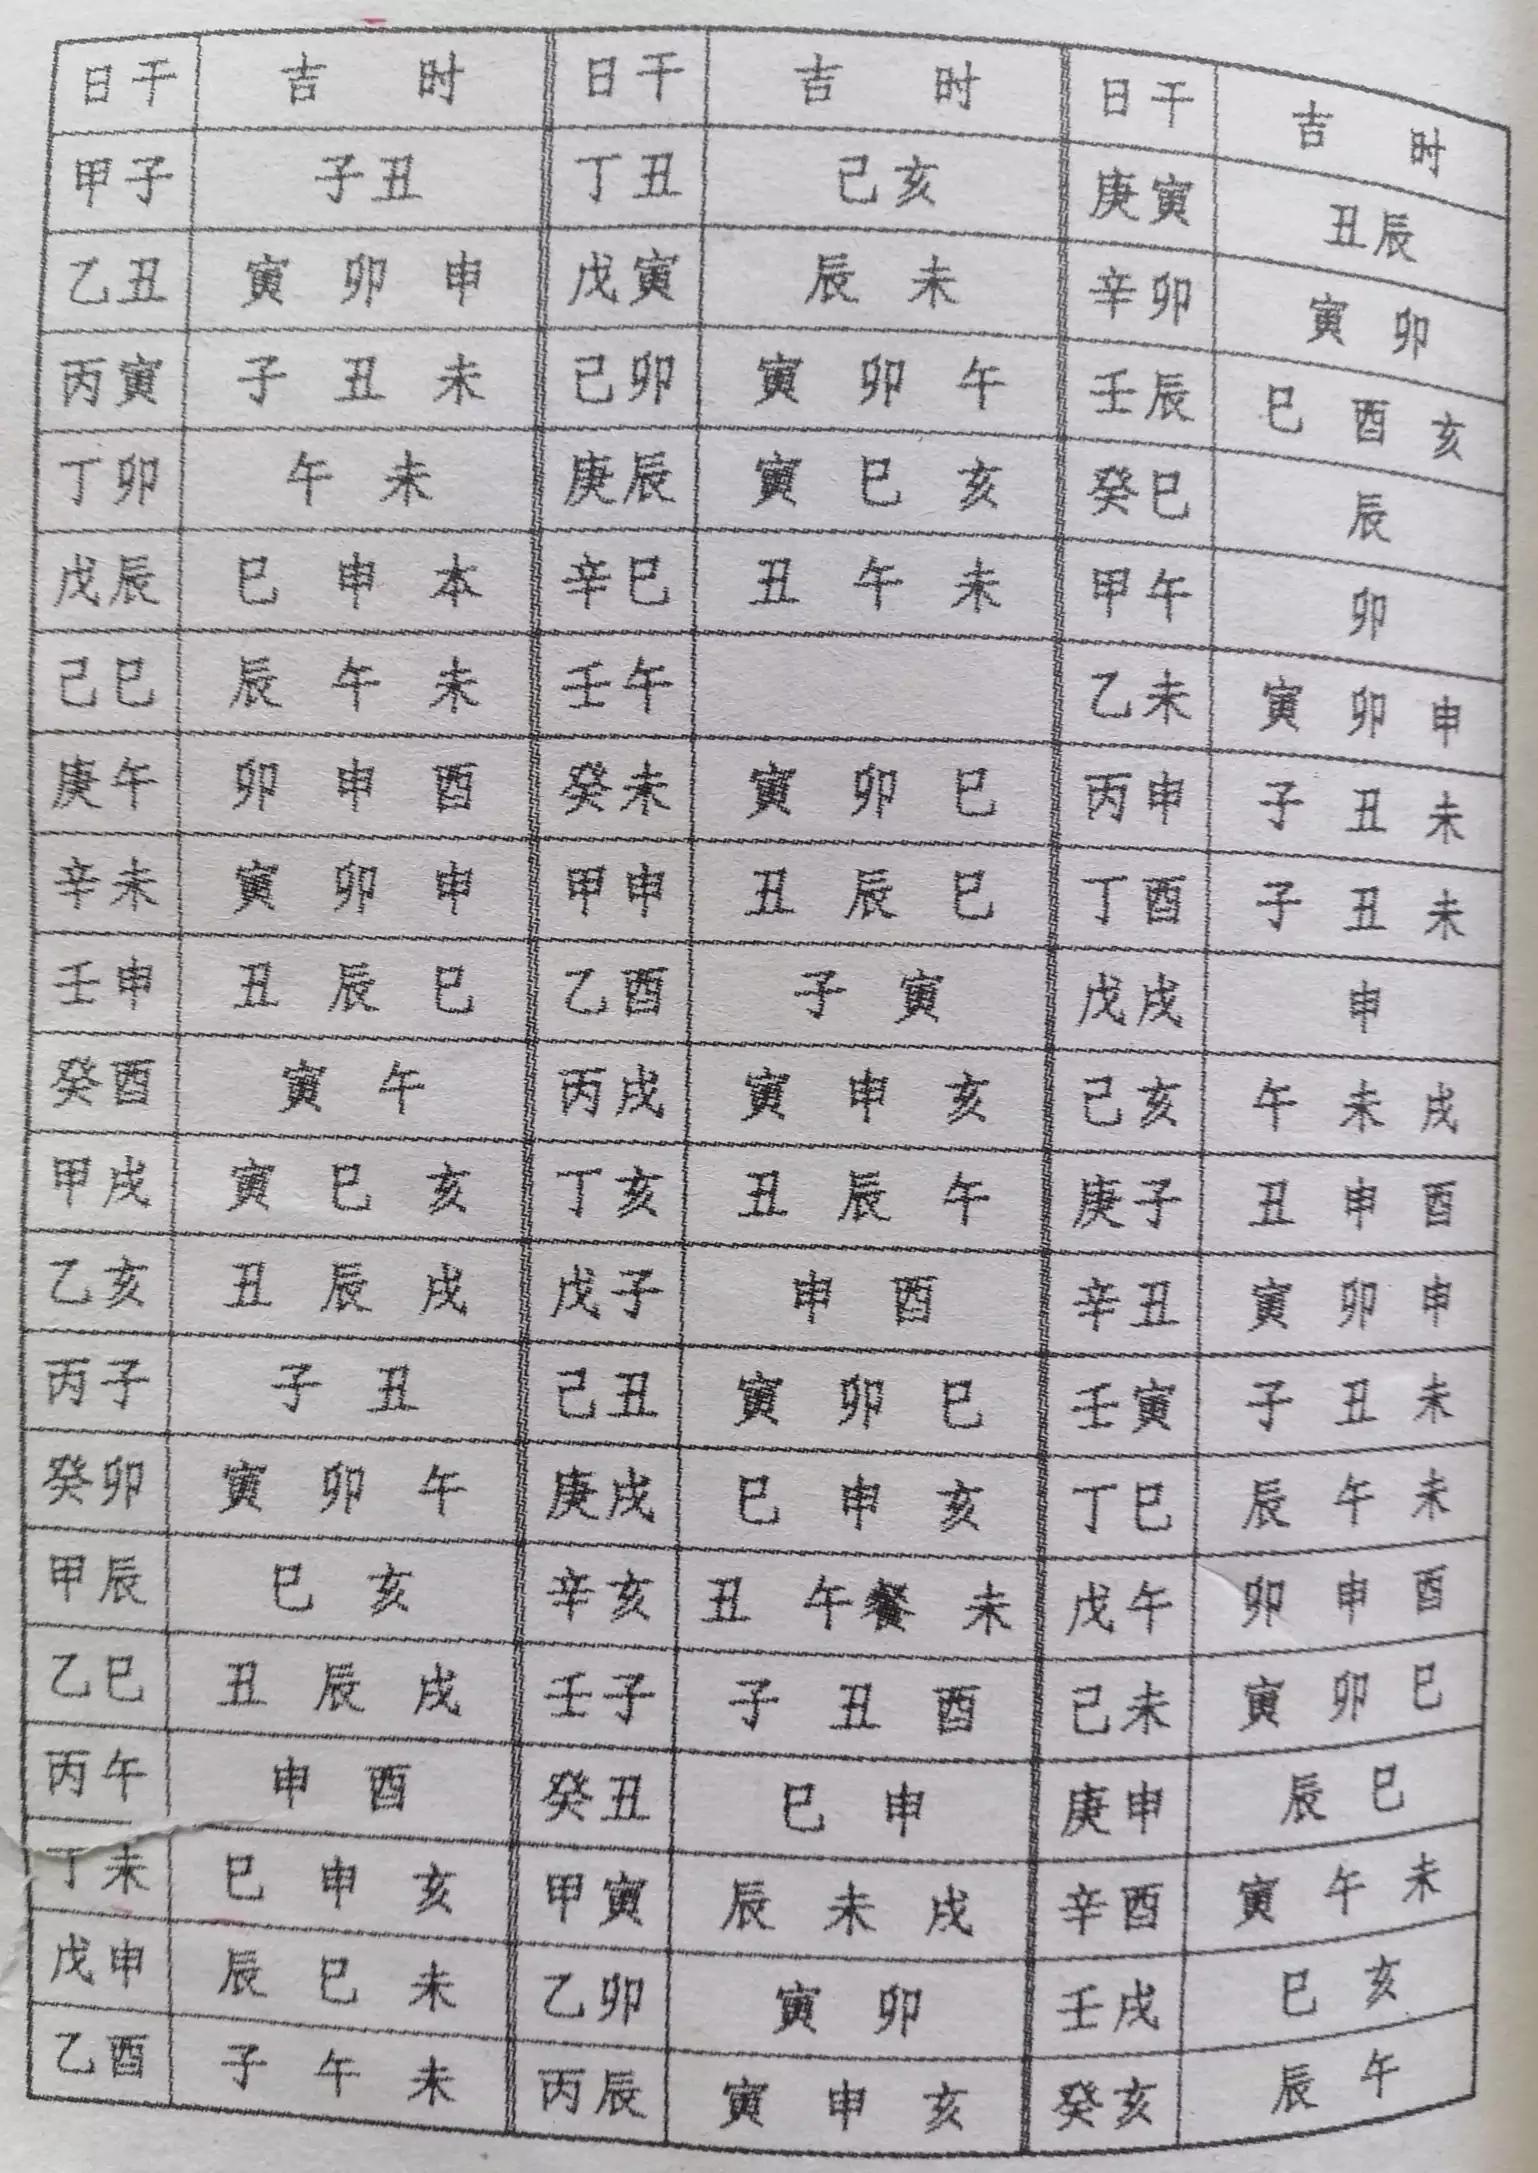 日干 吉 时 日干 吉 时 日干 吉 时
甲子 子丑 丁丑 己亥 庚寅 丑辰
乙丑 寅 卯 申 戊寅 辰 未 辛卯 寅 卯
丙寅 子 丑 未 己卯 寅 卯 午 壬辰 巳 酉 亥
丁卯 午 未 庚辰 寅 巳 亥 癸巳 辰
戊辰 巳 申 本 辛巳 丑 午 未 甲午 卯
己巳 辰 午 未 壬午 乙未 寅 卯 申
庚午 卯 申 酉 癸未 寅 卯 巳 丙申 子 丑 未
辛未 寅 卯 申 甲申 丑 辰 巳 丁酉 子 丑 未
壬申 丑 辰 巳 乙酉 子 寅 戊戌 申
癸酉 寅 午 丙戌 寅 申 亥 己亥 午 未 戌
甲戌 寅 巳 亥 丁亥 丑 辰 午 庚子 丑 申 酉
乙亥 丑 辰 戌 戊子 申 酉 辛丑 寅 卯 申
丙子 子 丑 己丑 寅 卯 巳 壬寅 子 丑 未
癸卯 寅 卯 午 庚戌 巳 申 亥 丁巳 辰 午 未
甲辰 巳 亥 辛亥 丑 午 未 戊午 卯 申 酉
乙巳 丑 辰 戌 壬子 子 丑 酉 己未 寅 卯 巳
丙午 申 酉 癸丑 巳 申 庚申 辰 巳
丁未 巳 申 亥 甲寅 辰 未 戌 辛酉 寅 午 未
戊申 辰 巳 未 乙卯 寅 卯 壬戌 巳 亥
乙酉 子 午 未 丙辰 寅 申 亥 癸亥 辰 午